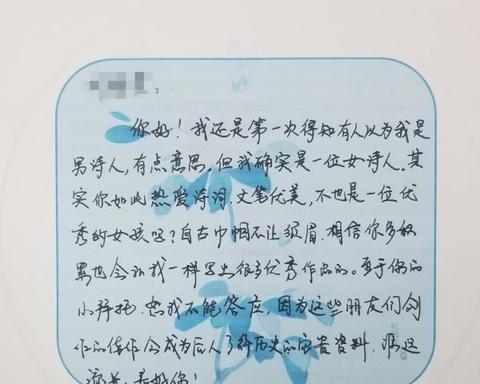 ：
你好！我还是第一次得知有人以为我是
男诗人，有点意思。但我确实是一位女诗人。其
实你如此热爱诗词，文笔优美，不也是一位优
秀的女孩吗？自古巾帼不让须眉，相信你多积
累也会和我一样写出很多优秀作品的。至于你的
小拜托，恕我不能答应，因为这些朋友们创
作的佳作会成为后人了解历史的宝贵资料，